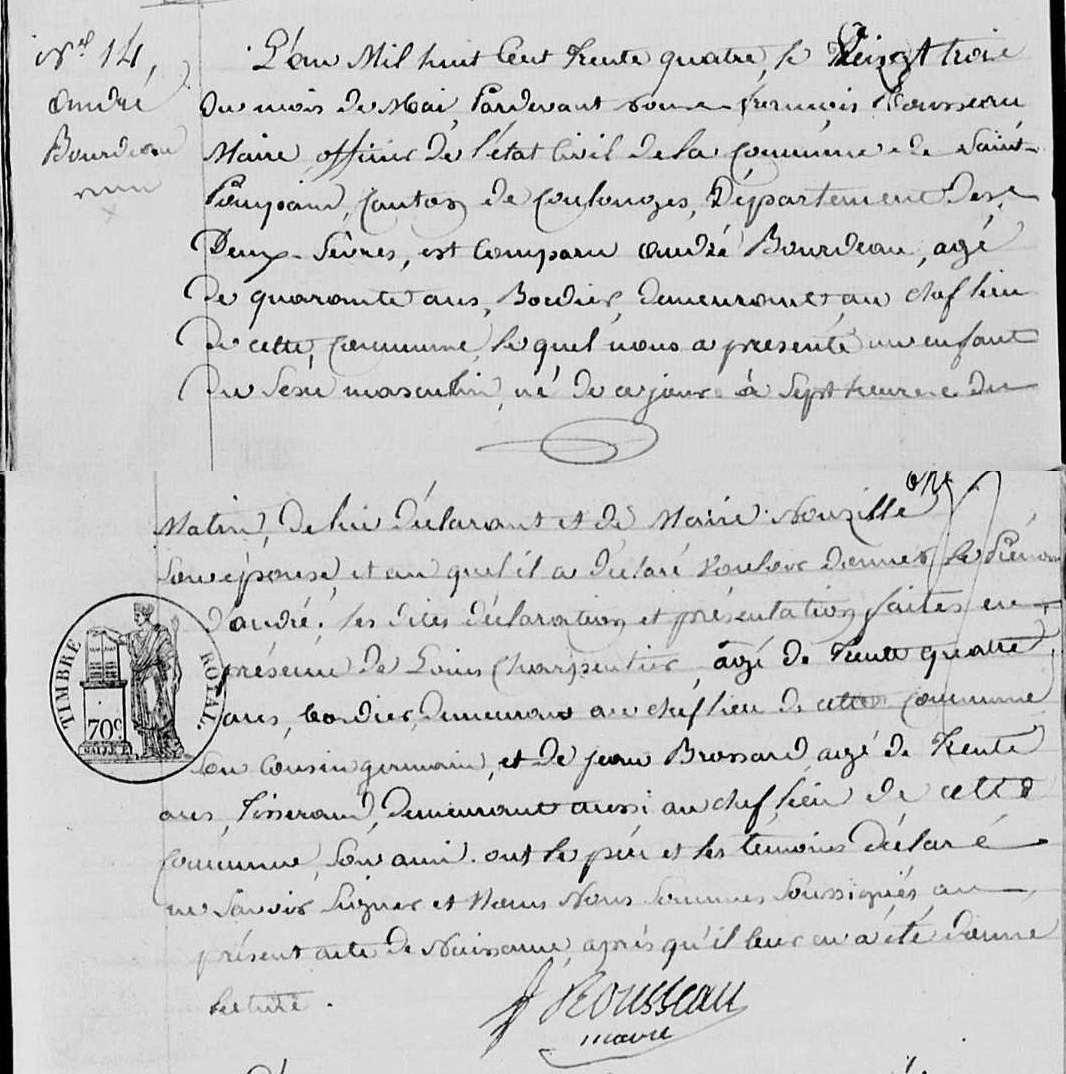 N° 14,
André
Bourdeau
L'an Mil huit Cent trente quatre, le Vingt trois
du mois de Mai, Pardevant nous François Rousseau
Maire officier de l'état Civil de la Commune de Saint-
Pompain, Canton de Coulonges, Département des
Deux-Sèvres, est Comparu André Bourdeau, agé
de quarante ans, Bordier, demeurant au chef lieu
de cette Commune, le quel nous a présenté un enfant
du Sexe masculin, né de ce jour à Sept heures du
Matin, de lui déclarant et de Marie Nouzille
Son épouse, et au quel il a déclaré Vouloir donner le Prénom
d'andré, les dites déclaration et présentation faites en
présence de Louis Charpentier, agé de trente quatre
ans, bordier, demeurant au chef lieu de cette Commune
Son Cousin germain, et de jean Brossard agé de trente
ans, Tisserand, demeurant aussi au chef lieu de cette
Commune, Son ami. ont le père et les temoins déclaré
ne Savoir Signer et Nous Nous Sommes Soussignés au
présent acte de Naissance, après qu'il leur en a été donné
lecture.
TIMBRE ROYAL
70c
Rousseau
maire